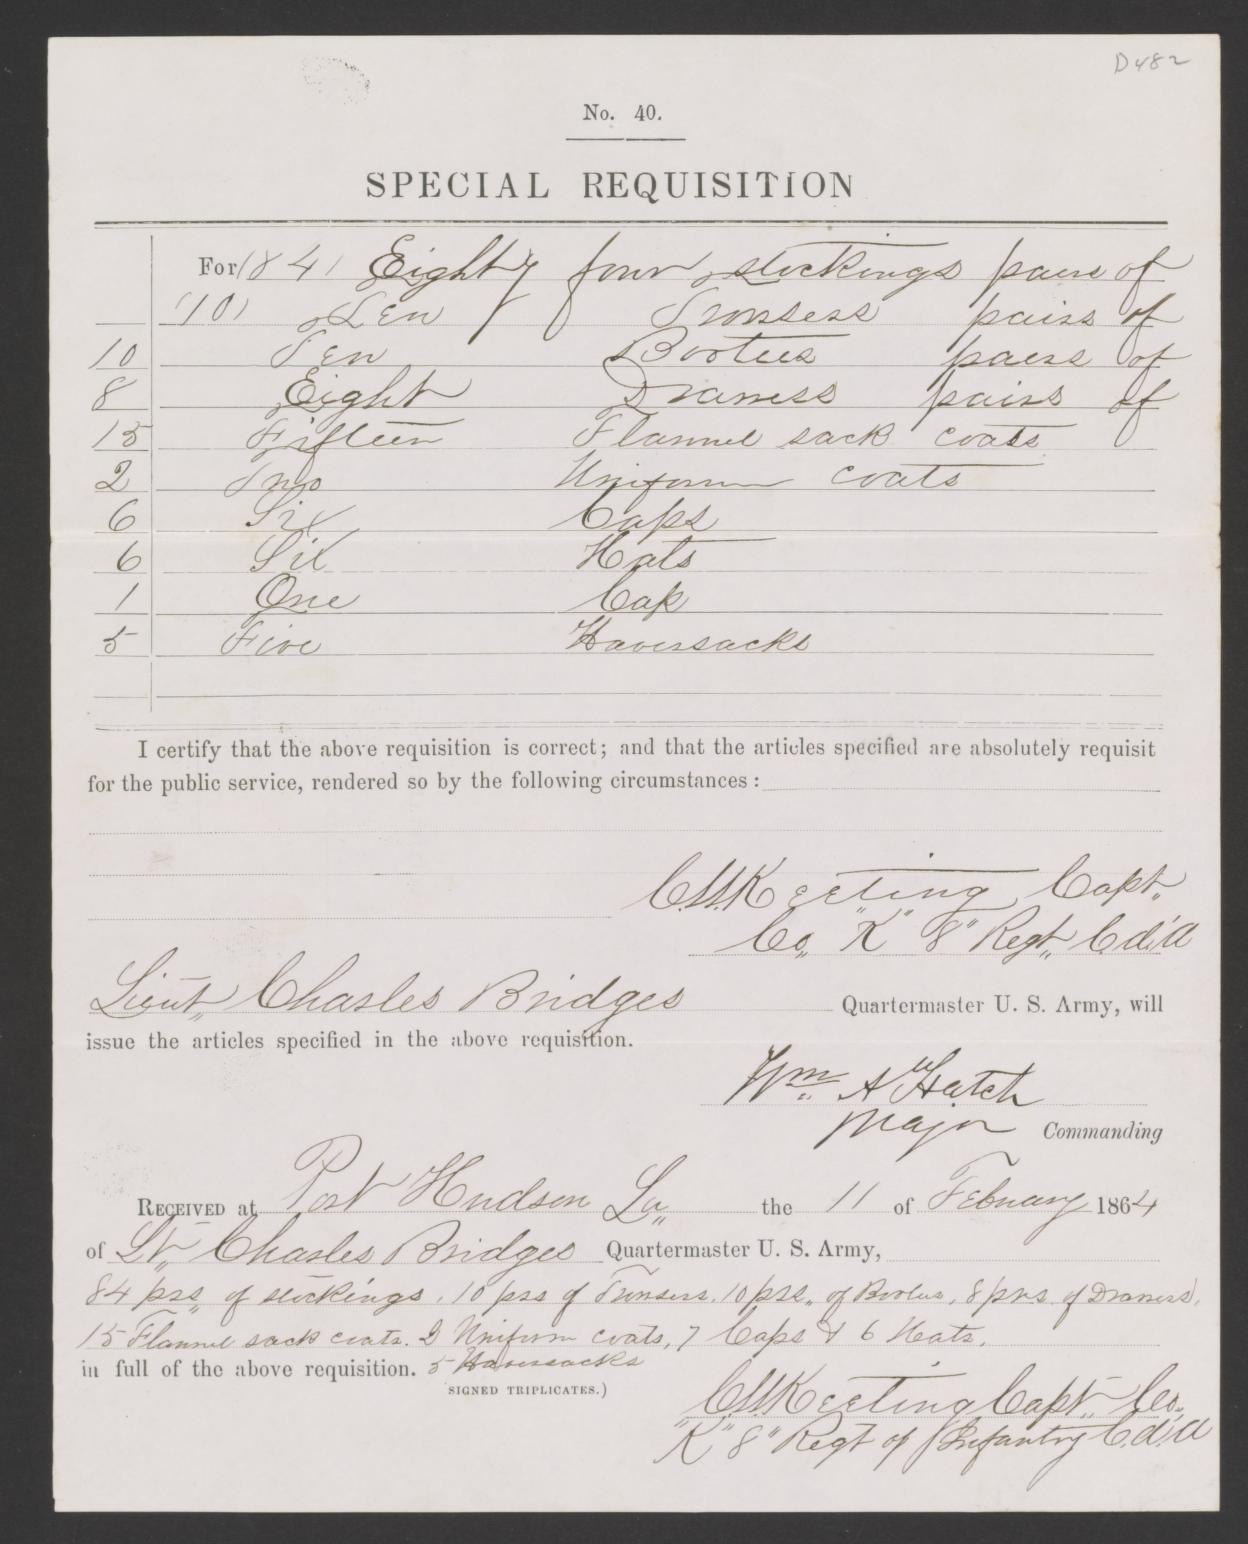 D482
No. 40.
SPECIAL REQUISITION
For (84) Eighty four stockings pairs of
(10) Ten Trousers pairs of
10 Ten Bootees pairs of
8 Eight Drawers pairs of
15 Fifteen Flannel sack coats
2 Two Uniform coats
6 Six Caps
6 Six Hats
1 One Cap
5 Five Haversacks
I certify that the above requisition is correct; and that the articles specified are absolutely requisit
for the public service, rendered so by the following circumstances:
Keeting Capt.
Co. "K" 8" Regt. C.d'A
Lieut. Charles Bridges Quartermaster U. S. Army, will
issue the articles specified in the above requisition.
Wm A Hatch
Major Commanding
RECEIVED at Port Hudson La. the 11 of February 1864
of Lt. Charles Bridges Quartermaster U. S. Army,
84 prs. of stockings. 10 prs of Trousers. 10 prs. of Bootees, 8 prs. of Drawers,
15 Flannel sack coats. 2 Uniform coats, 7 Caps & 6 Hats.
in full of the above requisition. 5 Haversacks
SIGNED TRIPLICATES.)
Keeting Capt. Co.
"K" 8" Regt of Infantry C.d'A